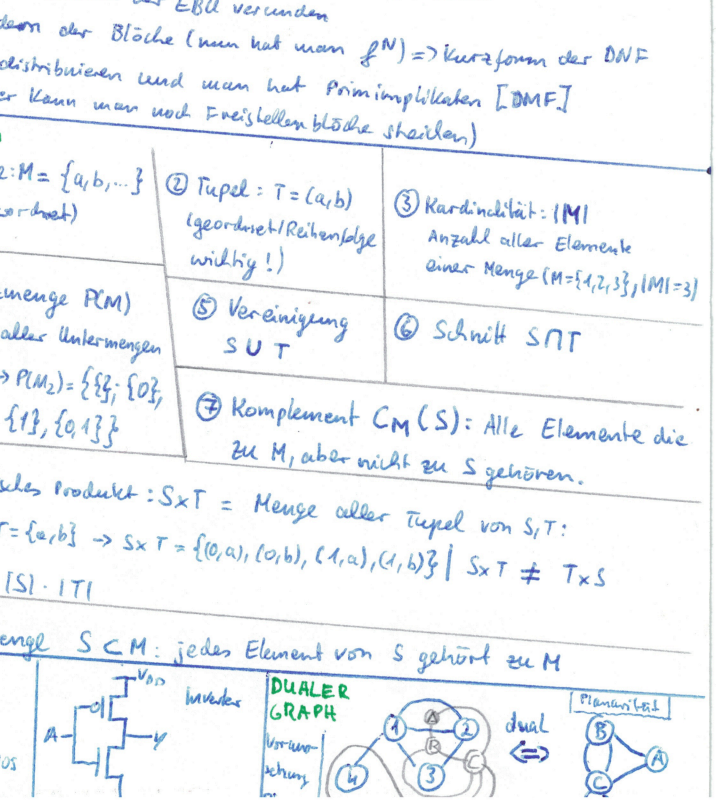 der EBU verunden
der Blöche (nun hat man f^N) => Kurzform der DNF
distribuieren und man hat Primimplikaten [DMF]
er kann man noch Freistellenblöche streichen)
: M = {a,b,...}
② Tupel : T = (a,b)
(geordnet/Reihenfolge
wichtig!)
③ Kardinalität : |M|
Anzahl aller Elemente
einer Menge (M={1,2,3}, |M|=3)
menge P(M)
aller Untermengen
→ P(M₂) = {{}; {0},
{1}, {0,1}}
⑤ Vereinigung
S ∪ T
⑥ Schnitt S∩T
⑦ Komplement C_M (S) : Alle Elemente die
zu M, aber nicht zu S gehören.
sches Produkt : S×T = Menge aller Tupel von S,T :
T = {a,b} → S×T = {(0,a), (0,b), (1,a), (1,b)} | S×T ≠ T×S
|S| · |T|
enge S ⊂ M : jedes Element von S gehört zu M
V_DD
Inverter
A
y
DUALER
GRAPH
1
2
3
4
A
B
C
dual
<=>
Planarität
B
A
C